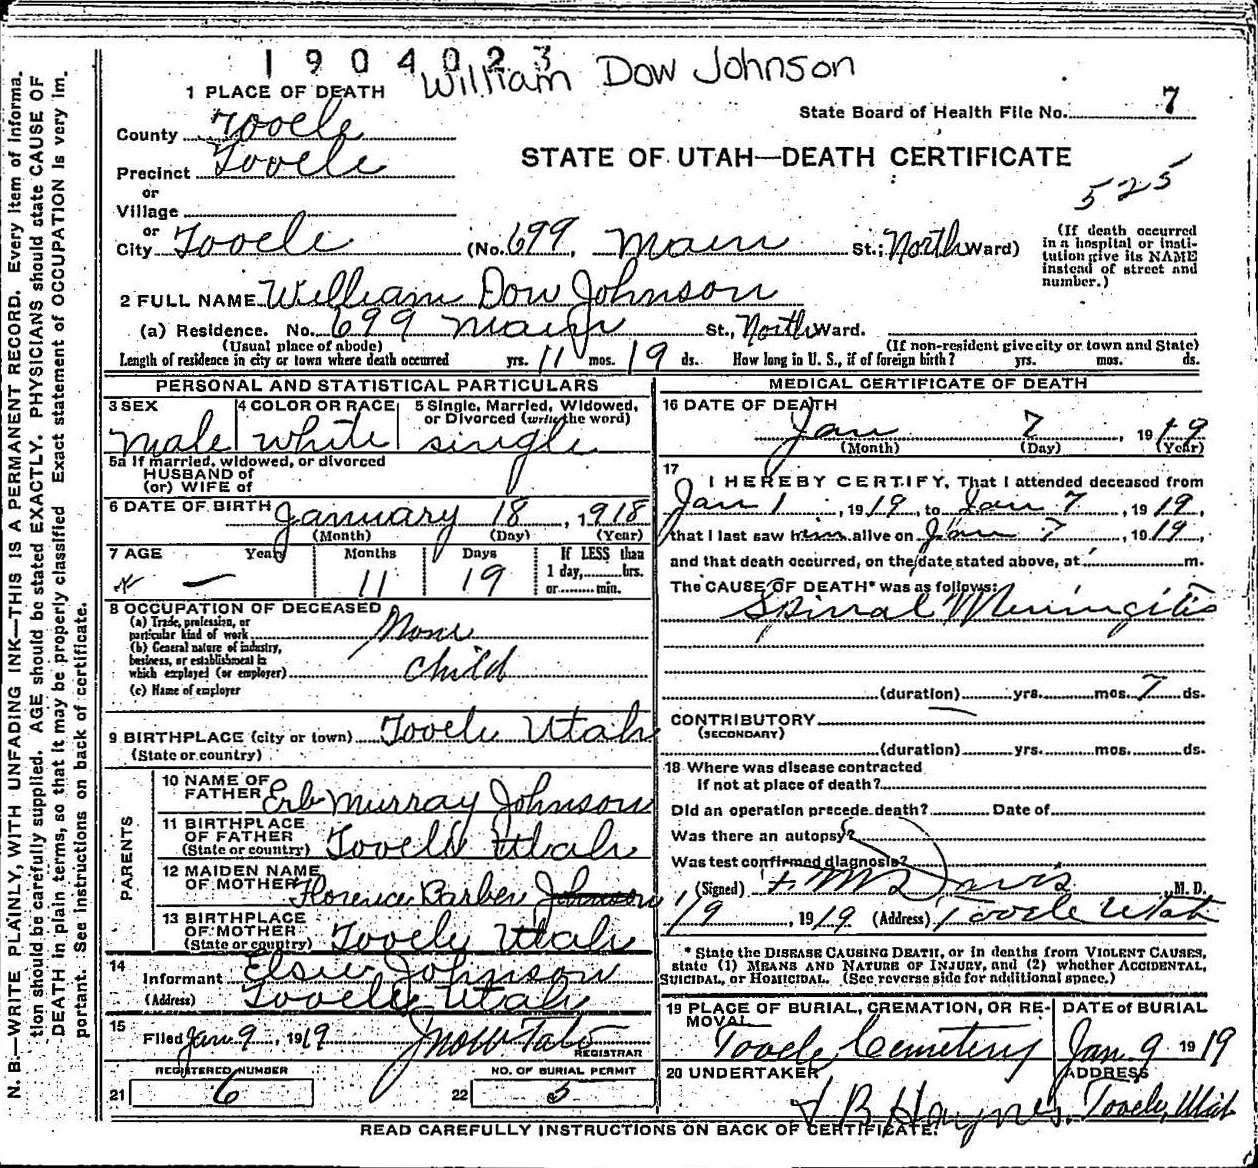 1904023
William Dow Johnson
1 PLACE OF DEATH
State Board of Health File No. 7
County Tooele
STATE OF UTAH—DEATH CERTIFICATE
Precinct Tooele
or
Village
525
or
City Tooele (No. 699, Main St.; North Ward)
(If death occurred
in a hospital or insti-
tution give its NAME
instead of street and
number.)
2 FULL NAME William Dow Johnson
(a) Residence. No. 699 Main St., North Ward.
(Usual place of abode) (If non-resident give city or town and State)
Length of residence in city or town where death occurred yrs. 11 mos. 19 ds. How long in U. S., if of foreign birth? yrs. mos. ds.
PERSONAL AND STATISTICAL PARTICULARS
3 SEX
male
4 COLOR OR RACE
white
5 Single, Married, Widowed,
or Divorced (write the word)
single
5a If married, widowed, or divorced
HUSBAND of
(or) WIFE of
6 DATE OF BIRTH January 18, 1918
(Month) (Day) (Year)
7 AGE Years Months Days If LESS than
— 11 19 1 day, hrs.
or min.
8 OCCUPATION OF DECEASED
(a) Trade, profession, or
particular kind of work None
(b) General nature of industry,
business, or establishment in
which employed (or employer) Child
(c) Name of employer
9 BIRTHPLACE (city or town) Tooele Utah
(State or country)
PARENTS
10 NAME OF
FATHER Erb Murray Johnson
11 BIRTHPLACE
OF FATHER
(State or country) Tooele Utah
12 MAIDEN NAME
OF MOTHER Florence Barber Johnson
13 BIRTHPLACE
OF MOTHER
(State or country) Tooele Utah
14
Informant Elsie Johnson
(Address) Tooele Utah
15
Filed Jan 9, 1919
REGISTRAR
REGISTERED NUMBER
21 6
NO. OF BURIAL PERMIT
22 5
MEDICAL CERTIFICATE OF DEATH
16 DATE OF DEATH
Jan 7, 1919
(Month) (Day) (Year)
17
I HEREBY CERTIFY, That I attended deceased from
Jan 1, 1919, to Jan 7, 1919,
that I last saw him alive on Jan 7, 1919,
and that death occurred, on the date stated above, at m.
The CAUSE OF DEATH* was as follows:
Spinal Meningitis
(duration) yrs. mos. 7 ds.
CONTRIBUTORY
(SECONDARY)
(duration) yrs. mos. ds.
18 Where was disease contracted
if not at place of death?
Did an operation precede death? Date of
Was there an autopsy?
Was test confirmed diagnosis?
(Signed) Davis, M. D.
1/9, 1919 (Address) Tooele Utah
* State the DISEASE CAUSING DEATH, or in deaths from VIOLENT CAUSES,
state (1) MEANS AND NATURE OF INJURY, and (2) whether ACCIDENTAL,
SUICIDAL, or HOMICIDAL. (See reverse side for additional space.)
19 PLACE OF BURIAL, CREMATION, OR RE-
MOVAL
Tooele Cemetery
DATE OF BURIAL
Jan. 9 1919
20 UNDERTAKER
ADDRESS
Tooele, Utah
READ CAREFULLY INSTRUCTIONS ON BACK OF CERTIFICATE.
N. B.—WRITE PLAINLY, WITH UNFADING INK—THIS IS A PERMANENT RECORD. Every item of informa-
tion should be carefully supplied. AGE should be stated EXACTLY. PHYSICIANS should state CAUSE OF
DEATH in plain terms, so that it may be properly classified. Exact statement of OCCUPATION is very im-
portant. See instructions on back of certificate.